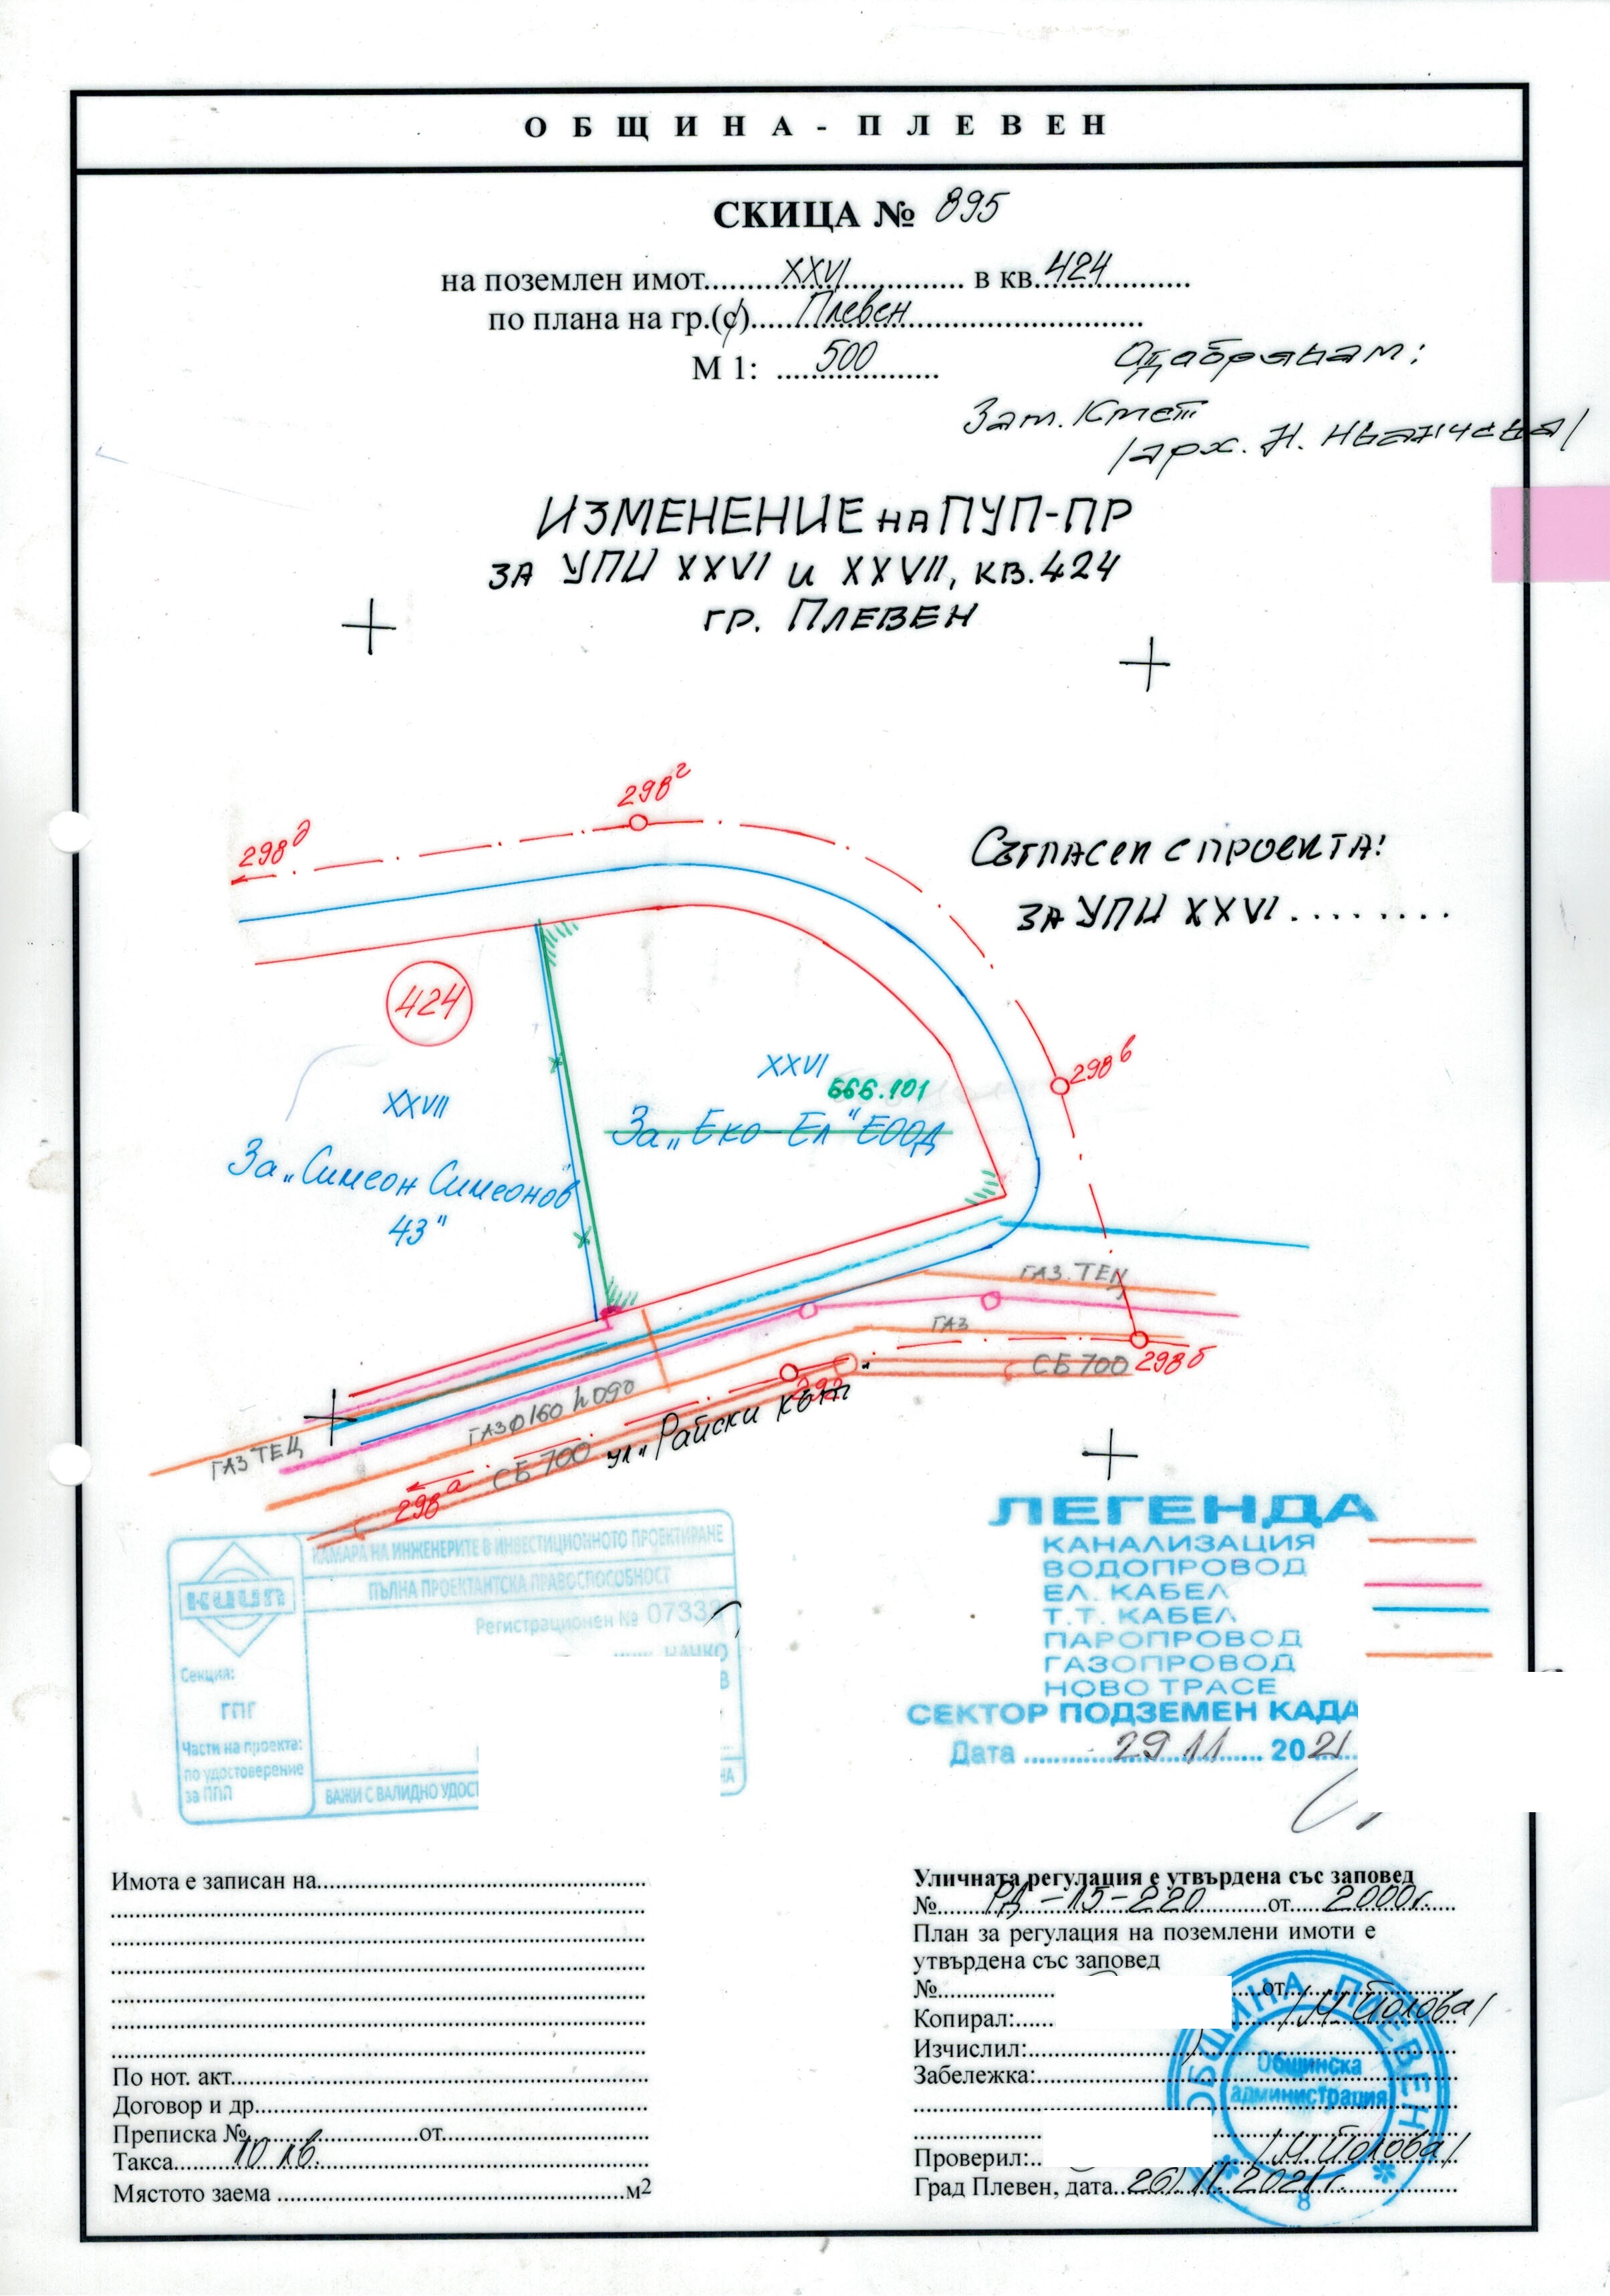 ОБЩИНА - ПЛЕВЕН
СКИЦА № 895
на поземлен имот.........XXVI............... в кв.424...................
по плана на гр.(с).....Плевен..............................................
М 1: .....500...............
Одобрявам:
Зам. Кмет
/арх. Н.
ИЗМЕНЕНИЕ на ПУП-ПР
ЗА УПИ XXVI и XXVII, КВ.424
ГР. ПЛЕВЕН
298г
298д
Съгласен с проекта!
ЗА УПИ XXVI ........
424
298в
XXVI
666.101
XXVII
За „Еко-Ел" ЕООД
За „Симеон Симеонов
43"
ГАЗ. ТЕЦ
ГАЗ
СБ 700
298б
298
ГАЗ Ф160 h 090
ул. „Райски кът
ГАЗ ТЕЦ
СБ 700
298а
КАМАРА НА ИНЖЕНЕРИТЕ В ИНВЕСТИЦИОННОТО ПРОЕКТИРАНЕ
ПЪЛНА ПРОЕКТАНТСКА ПРАВОСПОСОБНОСТ
КИИП
Регистрационен № 0733
Секция:
ГПГ
Части на проекта:
по удостоверение
за ППП
ВАЖИ С ВАЛИДНО УДОСТ
ЛЕГЕНДА
КАНАЛИЗАЦИЯ
ВОДОПРОВОД
ЕЛ. КАБЕЛ
Т.Т. КАБЕЛ
ПАРОПРОВОД
ГАЗОПРОВОД
НОВО ТРАСЕ
СЕКТОР ПОДЗЕМЕН КАДА
Дата ............29.11......... 2021
Имота е записан на.....................................................
По нот. акт...................................................................
Договор и др...............................................................
Преписка №............................от.....................................
Такса.........10 лв......................................................
Мястото заема ........................................................м2
Уличната регулация е утвърдена със заповед
№.......РД-15-220...........от.....2000г......
План за регулация на поземлени имоти е
утвърдена със заповед
№................... от
Копирал:...... /М. Йолова/
Изчислил:
Забележка:
Проверил:.. /М. Йолова/
Град Плевен, дата..26.11.2021г.
ОБЩИНА ПЛЕВЕН
Общинска
администрация
8